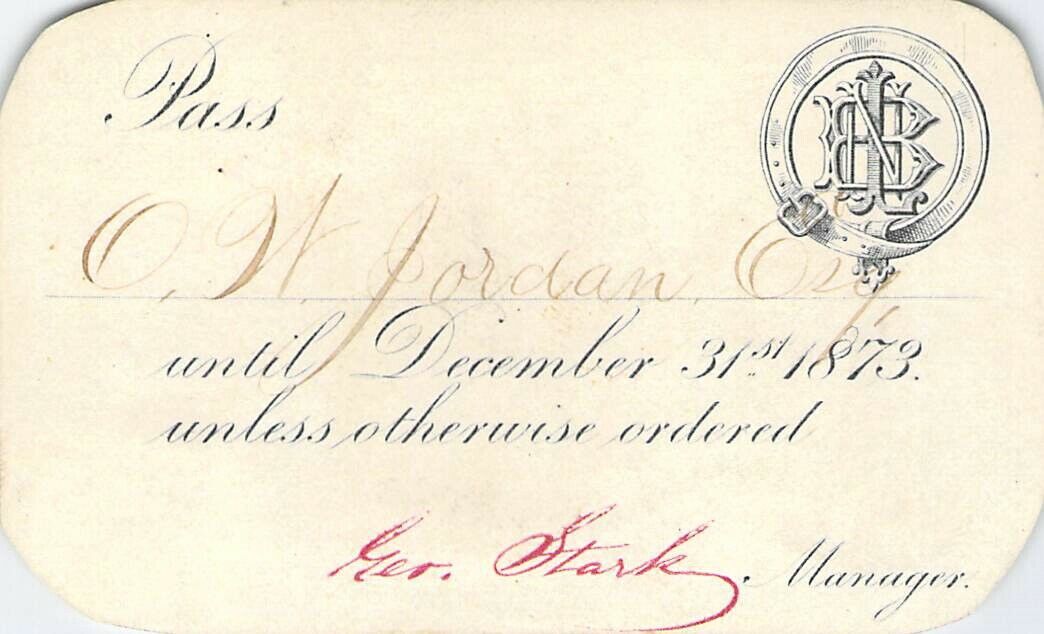 Pass
O. W. Jordan, Esq,
until December 31st 1873.
unless otherwise ordered
Geo. Stark, Manager.